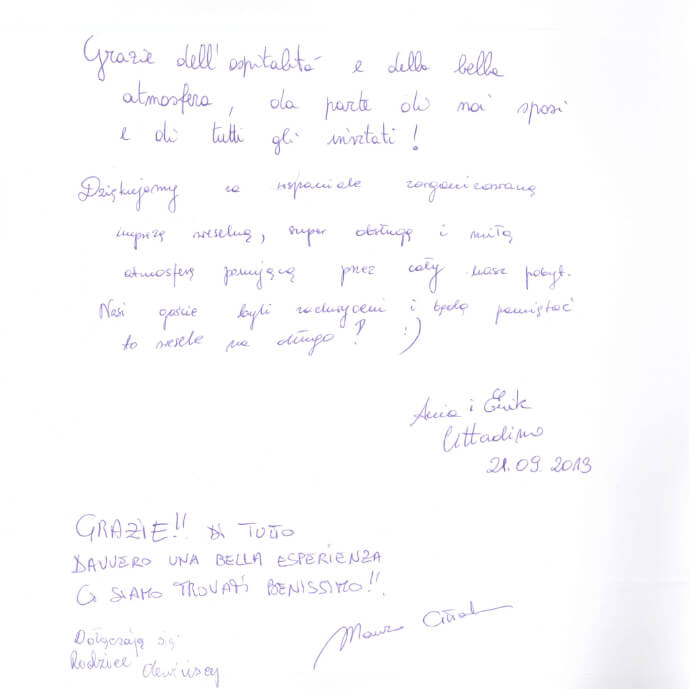 Grazie dell'ospitalità e della bella
atmosfera, da parte di noi sposi
e di tutti gli invitati!
Dziękujemy za wspaniale zorganizowaną
imprezę weselną, super obsługę i miłą
atmosferę panującą przez cały nasz pobyt.
Nasi goście byli zachwyceni i będą pamiętać
to wesele na długo! :)
Ania i Erik
Cittadino
21.09.2013
GRAZIE!! DI TUTTO
DAVVERO UNA BELLA ESPERIENZA
CI SIAMO TROVATI BENISSIMO!!
Dołączają się
Rodzice